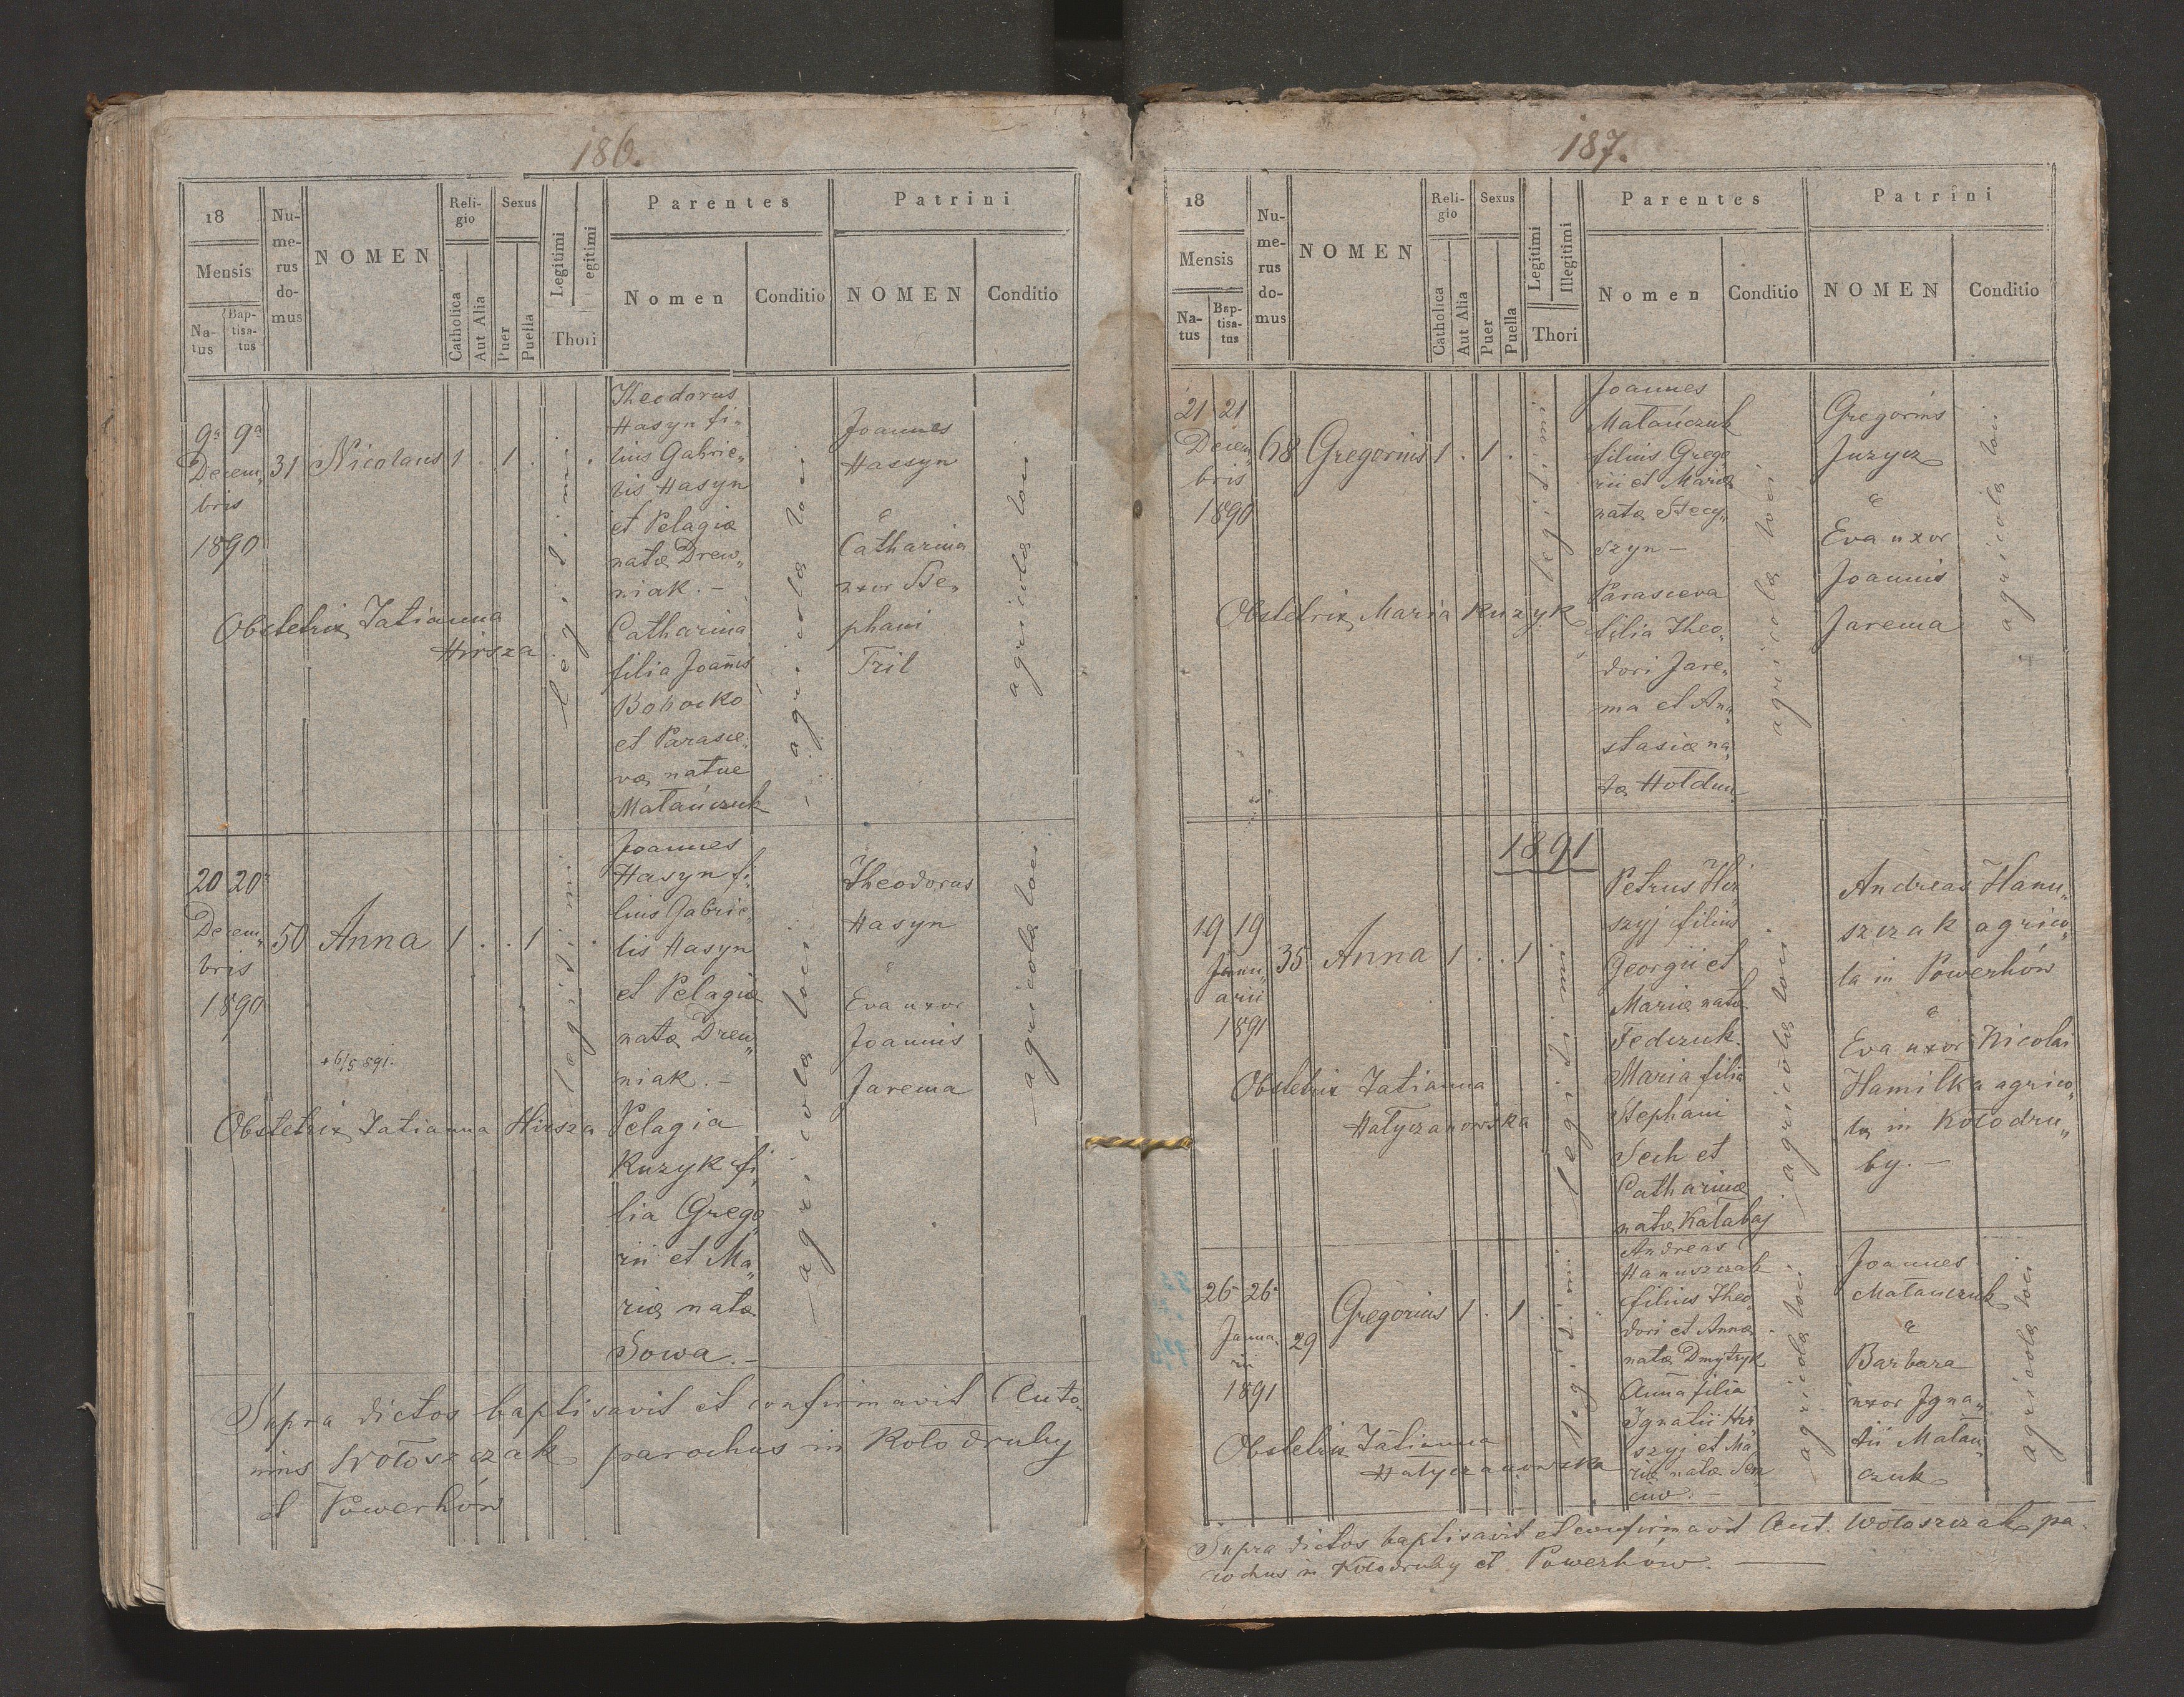 186.
18
Mensis
Na-
tus
Bap-
tisa-
tus
Nu-
me-
rus
do-
mus
NOMEN
Reli-
gio
Catholica
Aut Alia
Sexus
Puer
Puella
Legitimi
egitimi
Thori
Parentes
Nomen
Conditio
Patrini
NOMEN
Conditio
9a 9a
Decem„
bris
1890
31
Nicolaus
1 . 1 . .
legitimi
Theodorus
Hasyn fi„
lius Gabrie„
lis Hasyn
et Pelagiæ
natæ Drew„
niak. –
Catharina
filia Joanis
Bobocko
et Parasce„
væ natae
Matańczuk
agricolæ loci
Joannes
Hassyn
&
Catharina
uxor Ste„
phani
Tril
agricolæ loci
Obstetrix Tatianna
Hirsza
20 20
Decem„
bris
1890
50
Anna
1 . . 1 .
legitimi
+ 6/5 891.
Joannes
Hasyn fi„
lius Gabrie„
lis Hasyn
et Pelagiæ
natæ Drew„
niak. –
Pelagia
Kuzyk fi„
lia Grego„
rii et Ma„
riæ natæ
Sowa. –
agricolæ loci
Theodorus
Hasyn
&
Eva uxor
Joannis
Jarema
agricolæ loci
Obstetrix Tatianna Hirsza
Supra dictos baptisavit et confirmavit Anto„
nius Wołoszczak parochus in Kołodruby
et Powerhów
187.
18
Mensis
Na-
tus
Bap-
tisa-
tus
Nu-
me-
rus
do-
mus
NOMEN
Reli-
gio
Catholica
Aut Alia
Sexus
Puer
Puella
Legitimi
Illegitimi
Thori
Parentes
Nomen
Conditio
Patrini
NOMEN
Conditio
21 21
Decem„
bris
1890
68
Gregorius
1 . 1 .
legitimi
Joannes
Matańczuk
filius Grego
rii et Mariæ
natæ Stecy„
szyn –
Parasceva
filia Theo„
dori Jare„
ma et An„
stasiæ na„
tæ Hołdun
agricolæ loci
Gregorius
Juzycz
&
Eva uxor
Joannis
Jarema
agricolæ loci
Obstetrix Maria Kuzyk
1891
19 19
Janu„
arii
1891
35
Anna
1 . . 1
legitimi
Petrus Hir„
szyj filius
Georgii et
Mariæ natæ
Fedczuk.
Maria filia
Stephani
Sech et
Catharinæ
natæ Kałabaj
agricolæ loci
Andreas Hanu„
szczak agrico„
la in Powerhów
&
Eva uxor Nicolai
Hamiłka agrico„
la in Kołodru„
by. –
Obstetrix Tatianna
Hałyczanowska
26 26
Janua„
rii
1891
29
Gregorius
1 . 1 .
legitimi
Andreas
Hanuszczak
filius Theo„
dori et Annæ
natæ Dmytryk
Anna filia
Ignatii Hir„
szyj et Ma„
riæ natæ Sen„
ciw. –
agricolæ loci
Joannes
Matańczuk
&
Barbara
uxor Igna„
tii Matań„
czuk
agricolæ loci
Obstetrix Tatianna
Hałyczanowska
Supra dictos baptisavit et confirmavit Ant. Wołoszczak pa„
rochus in Kołodruby et Powerhów